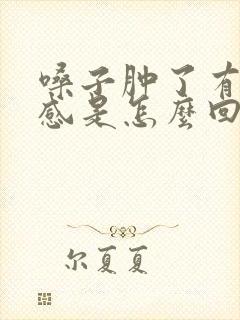 嗓子肿了有
感是怎麼回
尔夏夏